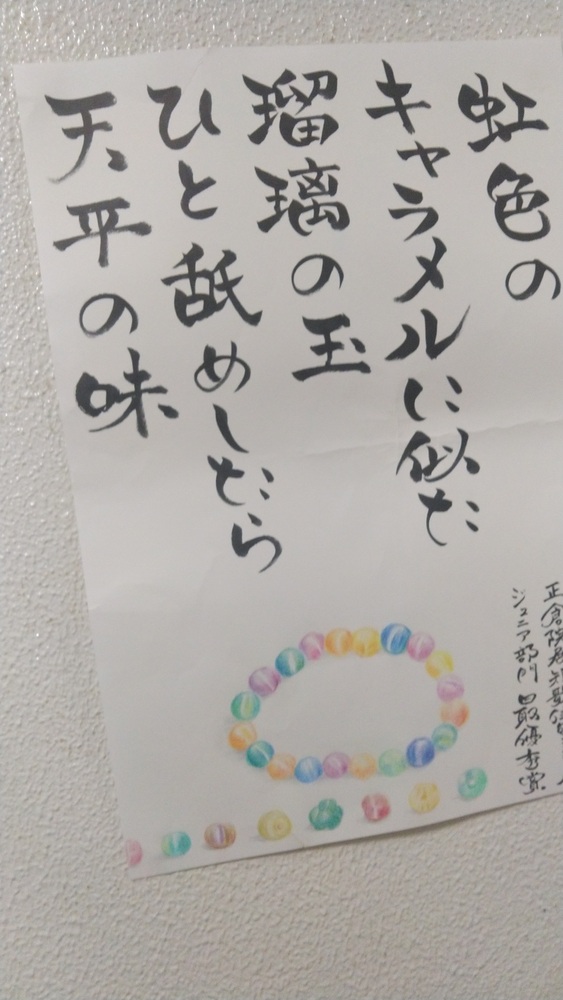 虹色の
キャラメルに似た
瑠璃の玉
ひと舐めしたら
天平の味
正倉院展短歌
ジュニア部門 最優秀賞